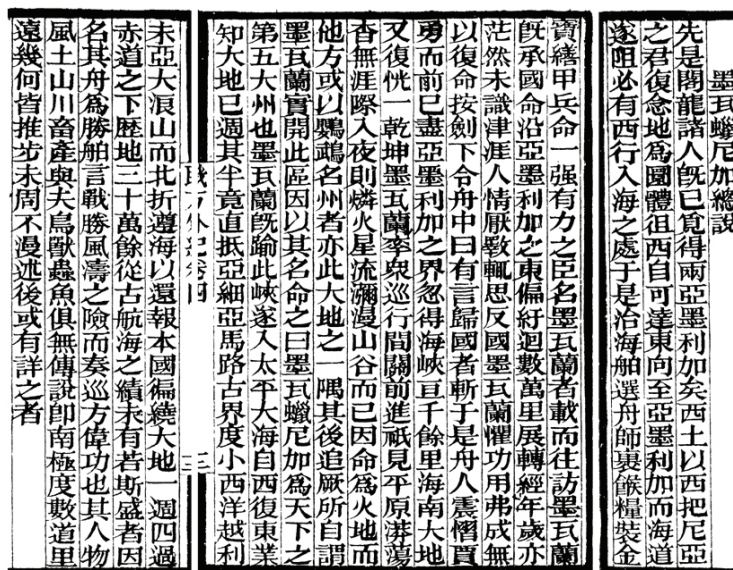 墨瓦蠟尼加總說
先是閣龍諸人旣已覓得兩亞墨利加矣西土以西把尼亞
之君復念地爲圜體徂西自可達東向至亞墨利加而海道
遂阻必有西行入海之處于是治海舶選舟師裹餱糧裝金
寶繕甲兵命一强有力之臣名墨瓦蘭者載而往訪墨瓦蘭
旣承國命沿亞墨利加之東偏紆迴數萬里展轉經年歲亦
茫然未識津涯人情厭斁輒思反國墨瓦蘭懼功用弗成無
以復命按劍下令舟中曰有言歸國者斬于是舟人震慴賈
勇而前已盡亞墨利加之界忽得海峽亘千餘里海南大地
又復恍一乾坤墨瓦蘭率衆巡行間關前進祗見平原漭蕩
杳無涯際入夜則燐火星流瀰漫山谷而已因命爲火地而
他方或以鸚鵡名州者亦此大地之一隅其後追厥所自謂
墨瓦蘭實開此區因以其名命之曰墨瓦蠟尼加爲天下之
第五大州也墨瓦蘭旣踰此峽遂入太平大海自西復東業
知大地已週其半竟直抵亞細亞馬路古界度小西洋越利
職方外紀卷四 三
未亞大浪山而北折遵海以還報本國徧繞大地一週四過
赤道之下歷地三十萬餘從古航海之績未有若斯盛者因
名其舟爲勝舶言戰勝風濤之險而奏巡方偉功也其人物
風土山川畜產與夫鳥獸蟲魚俱無傳說卽南極度數道里
遠幾何皆推步未周不漫述後或有詳之者